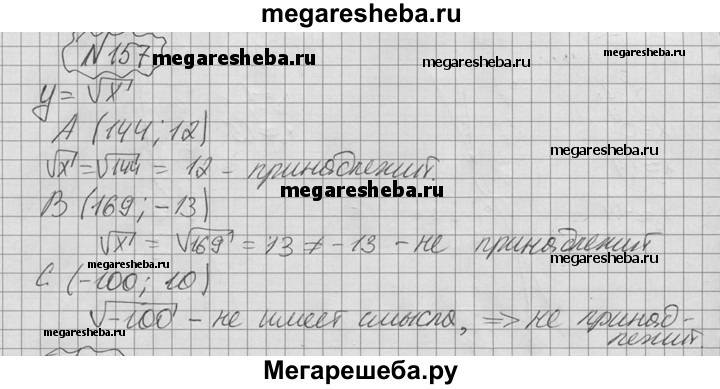 megaresheba.ru
N 157
megaresheba.ru
megaresheba.ru
megaresheba.ru
y = √x
A (144; 12)
√x = √144 = 12 - принадлежит.
megaresheba.ru
megaresheba.ru
B (169; -13)
√x = √169 = 13 ≠ -13 - не принадлежит
megaresheba.ru
megaresheba.ru
C (-100; 10)
megaresheba.ru
√-100 - не имеет смысла, => не принад-
лежит.
megaresheba.ru
Мегарешеба.ру